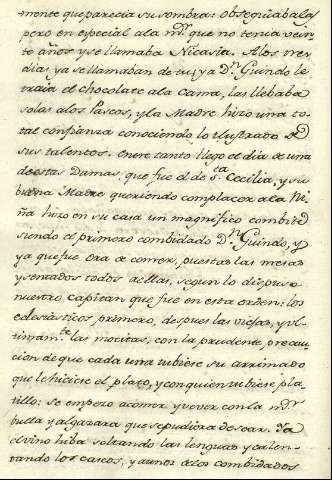 mente que parecia su sombra: obsequiabalas
pero en especial ala m.r que no tenia vein-
te años y se llamaba Nicasia. Alos tres
dias ya se llamaban de tu, y a D.n Guindo le
traia el chocolate ala Cama, las llebaba
solas alos Paseos, y la Madre hizo una to-
tal confianza conociendo lo ilustrado D
sus talentos. Entre tanto llego el dia de una
de estas Damas, que fue el de S.ta Cecilia, y su
buena Madre queriendo complacer ala Ni-
ña hizo en su casa un magnifico combite
siendo el primero combidado D.n Guindo, y
ya que fue ora de comer, puestas las mesas
y sentados todos aellas, segun lo dispuso
nuestro Capitan que fue en esta orden: los
eclesiasticos primero, despues las viejas, y ul-
timam.te las mocitas, con la prudente precau-
cion de que cada una tubiese su arrimado
que le hiciere el plato, y con quien tubiese pla-
tillo: Se empezo acomer y vever con la m.r
bulla y algazara que se pudiera desear. Ya
el vino hiba soltando las lenguas y calen-
tando los cascos, y aunos delos combidados